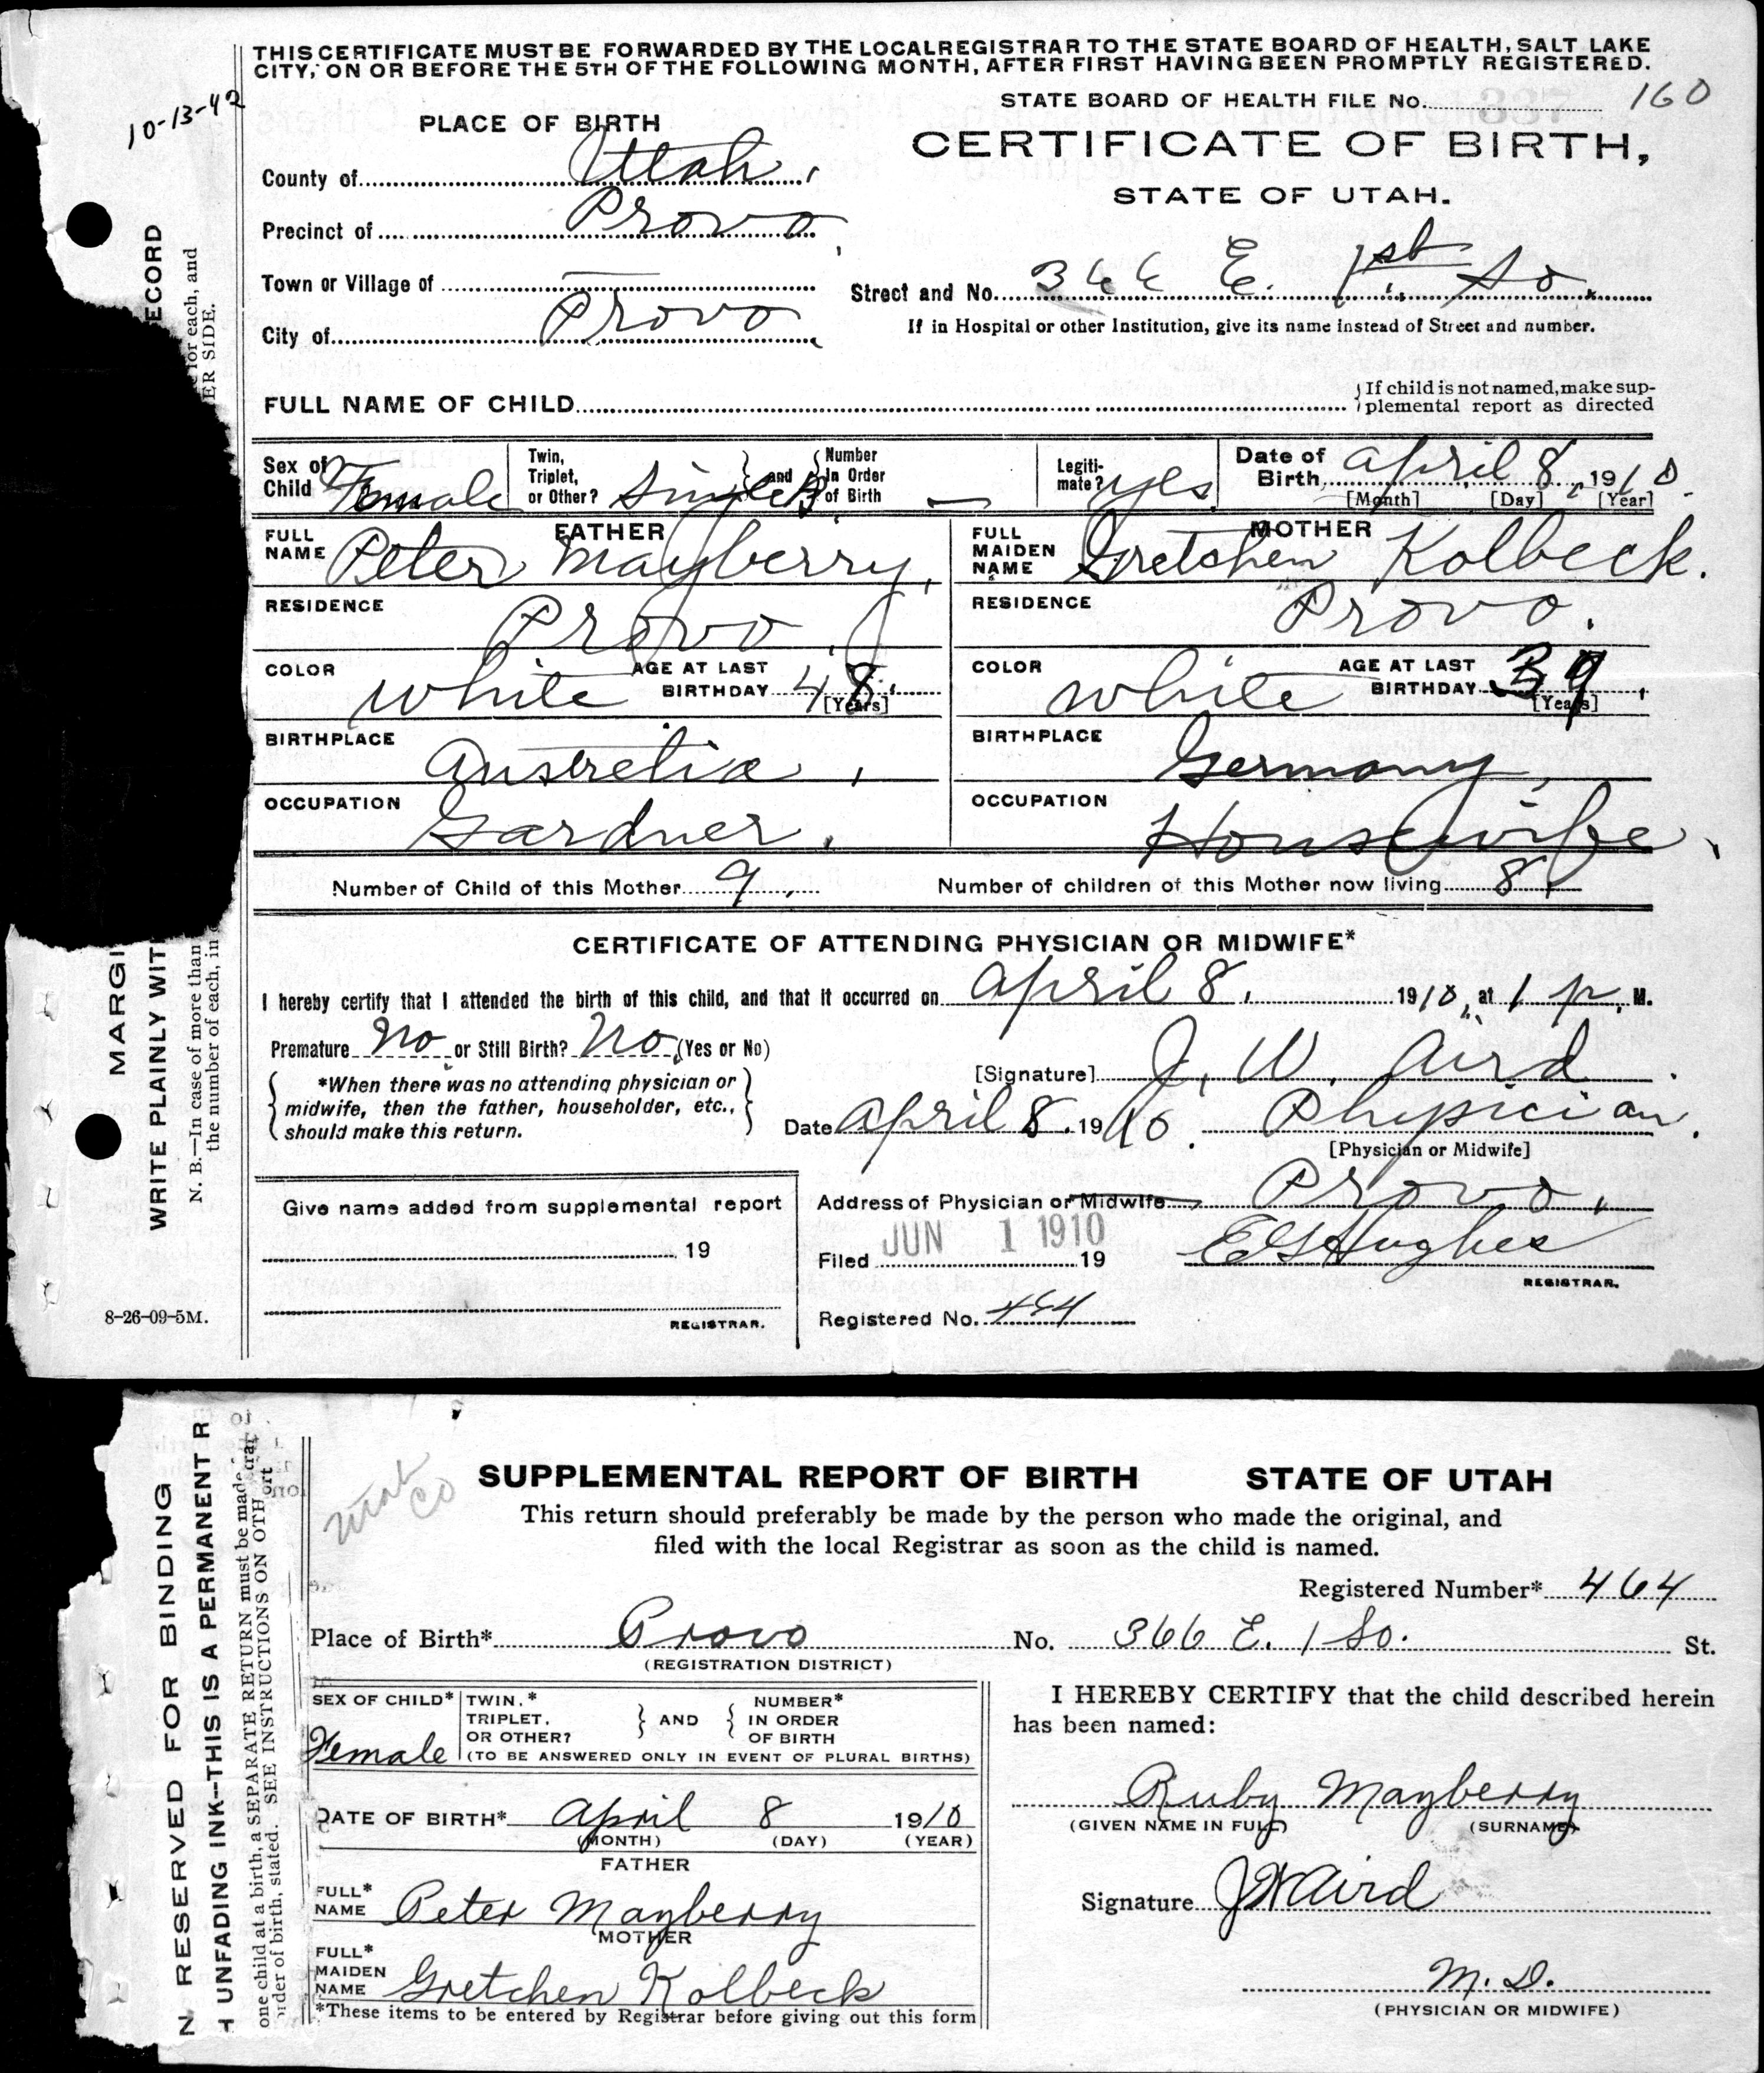 THIS CERTIFICATE MUST BE FORWARDED BY THE LOCAL REGISTRAR TO THE STATE BOARD OF HEALTH, SALT LAKE
CITY, ON OR BEFORE THE 5TH OF THE FOLLOWING MONTH, AFTER FIRST HAVING BEEN PROMPTLY REGISTERED.
10-13-42
STATE BOARD OF HEALTH FILE No. 160
PLACE OF BIRTH
CERTIFICATE OF BIRTH,
STATE OF UTAH.
County of Utah,
Precinct of Provo,
Town or Village of
Street and No. 366 E. 1st So.
City of Provo
If in Hospital or other Institution, give its name instead of Street and number.
FULL NAME OF CHILD
{If child is not named, make sup-
plemental report as directed
Sex of Child Female
Twin, Triplet, or Other? Single } and { Number in Order of Birth —
Legiti-mate? yes.
Date of Birth, April 8, 1910.
[Month] [Day] [Year]
FATHER
FULL NAME Peter Mayberry,
MOTHER
FULL MAIDEN NAME Gretchen Kolbeck.
RESIDENCE Provo,
RESIDENCE Provo.
COLOR white
AGE AT LAST BIRTHDAY 48,
[Years]
COLOR white
AGE AT LAST BIRTHDAY 39,
[Years]
BIRTHPLACE
BIRTHPLACE Germany,
OCCUPATION Gardner,
OCCUPATION Housewife,
Number of Child of this Mother 9,
Number of children of this Mother now living 8,
CERTIFICATE OF ATTENDING PHYSICIAN OR MIDWIFE*
I hereby certify that I attended the birth of this child, and that it occurred on April 8, 1910, at 1 p, M.
Premature No or Still Birth? No, (Yes or No)
{ *When there was no attending physician or
midwife, then the father, householder, etc.,
should make this return. }
[Signature] J. W. Aird.
Date April 8, 1910. Physician.
[Physician or Midwife]
Give name added from supplemental report
19
REGISTRAR.
Address of Physician or Midwife Provo,
Filed JUN 1 1910 19
E G Hughes
REGISTRAR.
Registered No. 464
8-26-09-5M.
ECORD
e for each, and
ER SIDE.
MARGI
WRITE PLAINLY WIT
N. B.—In case of more than
the number of each, in
Utah Co
SUPPLEMENTAL REPORT OF BIRTH STATE OF UTAH
This return should preferably be made by the person who made the original, and
filed with the local Registrar as soon as the child is named.
Registered Number* 464
Place of Birth* Provo No. 366 E. 1 So. St.
(REGISTRATION DISTRICT)
SEX OF CHILD* Female
TWIN,* TRIPLET, OR OTHER? } AND { NUMBER* IN ORDER OF BIRTH
(TO BE ANSWERED ONLY IN EVENT OF PLURAL BIRTHS)
DATE OF BIRTH* April 8 1910
(MONTH) (DAY) (YEAR)
FATHER
FULL* NAME Peter Mayberry
MOTHER
FULL* MAIDEN NAME Gretchen Kolbeck
*These items to be entered by Registrar before giving out this form
I HEREBY CERTIFY that the child described herein
has been named:
Ruby Mayberry
(GIVEN NAME IN FULL) (SURNAME)
Signature J W Aird
M. D.
(PHYSICIAN OR MIDWIFE)
N RESERVED FOR BINDING
H UNFADING INK--THIS IS A PERMANENT R
one child at a birth, a SEPARATE RETURN must be made
order of birth, stated. SEE INSTRUCTIONS ON OTH